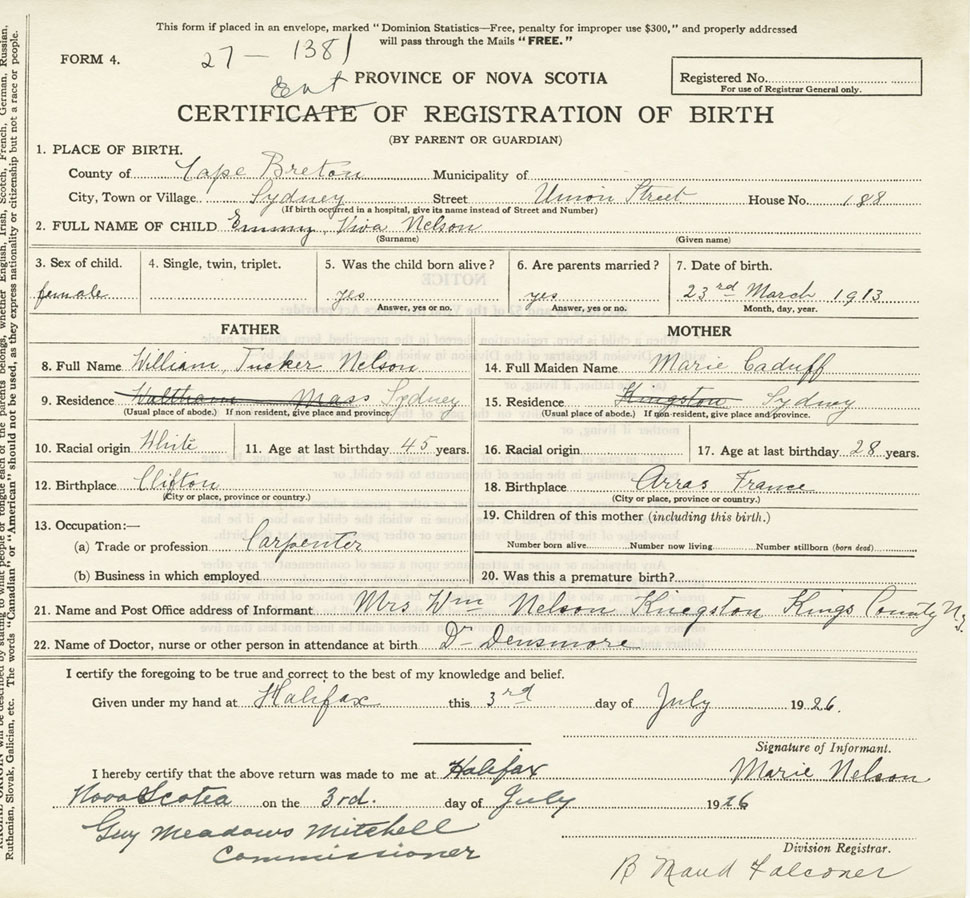 This form if placed in an envelope, marked "Dominion Statistics—Free, penalty for improper use $300," and properly addressed
will pass through the Mails "FREE."
27 — 1381
FORM 4.
Ent
PROVINCE OF NOVA SCOTIA
Registered No.
For use of Registrar General only.
CERTIFICATE OF REGISTRATION OF BIRTH
(BY PARENT OR GUARDIAN)
1. PLACE OF BIRTH.
County of Cape Breton Municipality of
City, Town or Village Sydney Street Union Street House No. 188
(If birth occurred in a hospital, give its name instead of Street and Number)
2. FULL NAME OF CHILD Emmy Viva Nelson
(Surname) (Given name)
3. Sex of child. 4. Single, twin, triplet. 5. Was the child born alive? 6. Are parents married? 7. Date of birth.
female yes yes 23rd March 1913
Answer, yes or no. Answer, yes or no. Month, day, year.
FATHER MOTHER
8. Full Name William Tucker Nelson 14. Full Maiden Name Marie Caduff
9. Residence Waltham Mass Sydney 15. Residence Kingston Sydney
(Usual place of abode.) If non resident, give place and province. (Usual place of abode.) If non-resident, give place and province.
10. Racial origin White 11. Age at last birthday 45 years. 16. Racial origin 17. Age at last birthday 28 years.
12. Birthplace Clifton 18. Birthplace Arras France
(City or place, province or country.) (City or place, province or country.)
13. Occupation:— 19. Children of this mother (including this birth.)
(a) Trade or profession Carpenter Number born alive. Number now living. Number stillborn (born dead)
(b) Business in which employed 20. Was this a premature birth?
21. Name and Post Office address of Informant Mrs Wm Nelson Kingston Kings County N.S.
22. Name of Doctor, nurse or other person in attendance at birth Dr Densmore
I certify the foregoing to be true and correct to the best of my knowledge and belief.
Given under my hand at Halifax this 3rd day of July 1926.
Signature of Informant.
I hereby certify that the above return was made to me at Halifax Marie Nelson
Nova Scotia on the 3rd. day of July 1926
Guy Meadows Mitchell
Commissioner
Division Registrar.
B Maud Falconer
Ruthenian, Slovak, Galician, etc. The words "Canadian" or "American" should not be used, as they express nationality or citizenship but not a race or people.